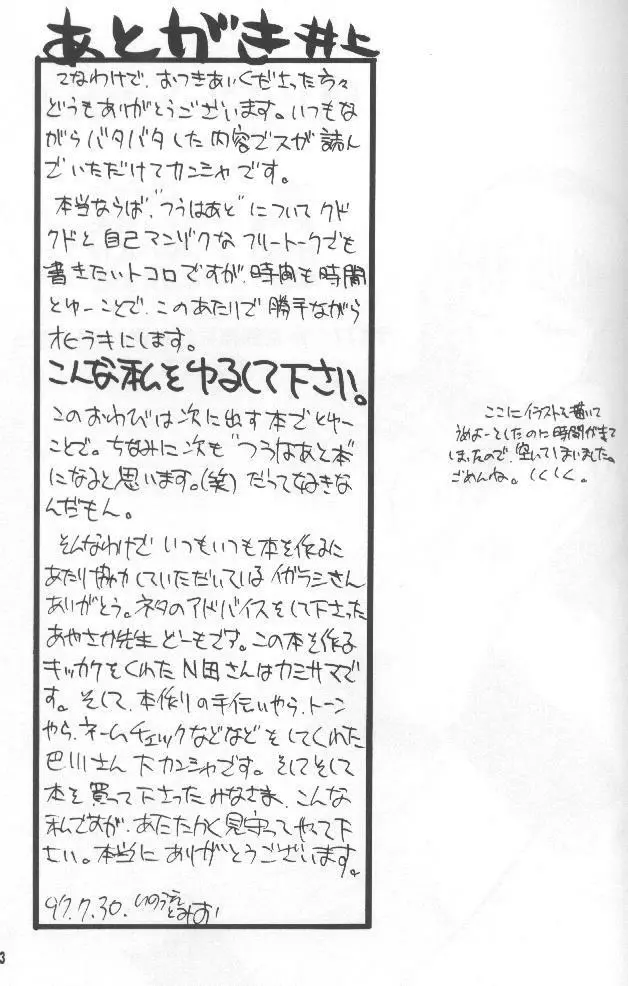 あとがき 井上
てなわけで、おつきあいくださった方々
どうもありがとうございます。いつもな
がらバタバタした内容でスが読ん
でいただけてカンシャです。
本当ならば、"つうはあと"について クド
クドと自己マンゾクな フリートークでも
書きたいトコロですが、時間も時間
とゆーことで、このあたりで勝手ながら
オヒラキにします。
こんな私をゆるして下さい。
このおわびは次に出す本でとゆー
ことで。ちなみに次も"つうはあと本"
になると思います。(笑) だって好きな
んだもん。
そんなわけで いつもいつも本を作るに
あたり協力していただいている イガラシさん
ありがとう。ネタのアドバイスをして下さった
あやさか先生 どーもです。この本を作る
キッカケをくれた N田さんはカミサマで
す。そして、本作りの手伝いやら、トーン
やら、ネームチェックなどなどをしてくれた
巴川さん 大カンシャです。そしてそして
本を買って下さったみなさま、こんな
私ですが、あたたかく見守ってやって下
さい。本当に ありがとうございます。
97.7.30. いのうえ
とみお
ここに イラストを描いて
うめよーとしたのに時間が来て
しまったので、空いてしまいました。
ごめんね。しくしく。
3